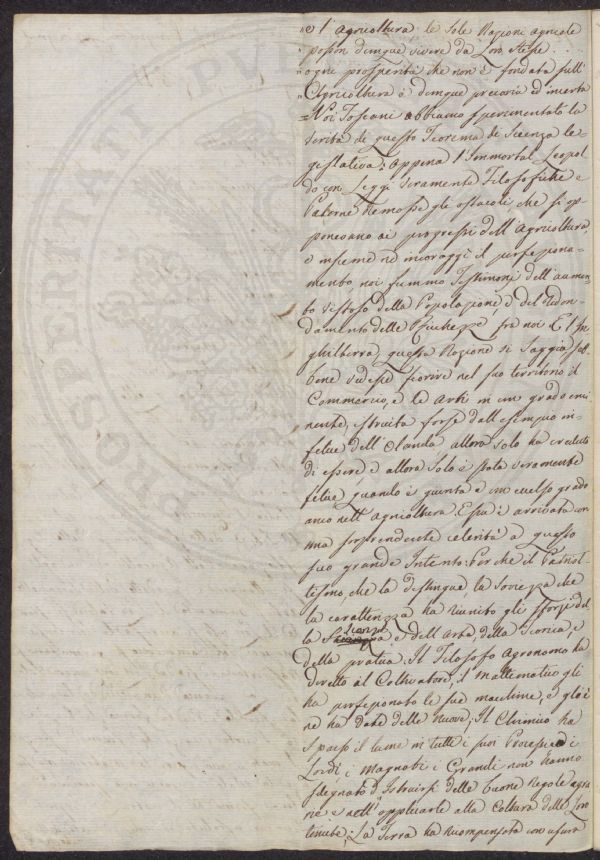 „ e l'Agricoltura, le Sole Nazioni agricole
„ posson dunque vivere da Loro Stesse . . .
„ ogni prosperità che non è fondata sull'
„ Agricoltura è dunque precaria ed incerta
= Noi Toscani abbiamo sperimentato la
verità di questo Teorema di Scienza le-
gislativa. Appena l'Immortal Leopol-
do con Leggi veramente Filosofiche e
Paterne remosse gli ostacoli che si op-
ponevano ai progressi dell'Agricoltura,
e insieme ne incoraggì il perfeziona-
mento, noi fummo Testimoni dell'aumen-
to vistoso della Popolazione, e del Ridon-
damento delle Ricchezze fra noi. E l'In-
ghilterra, questa Nazione sì Saggia seb-
bene vedesse fiorire nel suo territorio il
Commercio, e le Arti in un grado emi-
nente, istruita forse dall'esempio in-
felice dell'Olanda allora solo ha creduto
di essere, e allora solo è stata veramente
felice, quando è giunta a un eccelso grado
anco nell'Agricoltura. Essa è arrivata con
una sorprendente celerità a questo
suo grande Intento: Perchè il Patriot-
tismo, che la distingue, la Saviezza che
la caratterizza ha riunito gli sforzi del
la Scienza e dell'Arte, della Teoria, e
della pratica. Il Filosofo Agronomo ha
diretto il Coltivatore, il Mattematico gli
ha perfezionato le sue macchine, e gliè
ne ha date delle nuove; Il Chimico ha
sparso il lume in tutti i suoi Processi. I
Lordi, i Magnati, i Grandi non hanno
sdegnato d'Istruirsi delle buone Regole agra-
rie e nell'applicarle alla Coltura delle Loro
tenute; La Terra ha ricompensato con usura